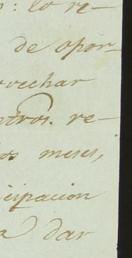 n: lo re-
de opor-
ovechar
otros. re-
os meses,
cipacion
a dar